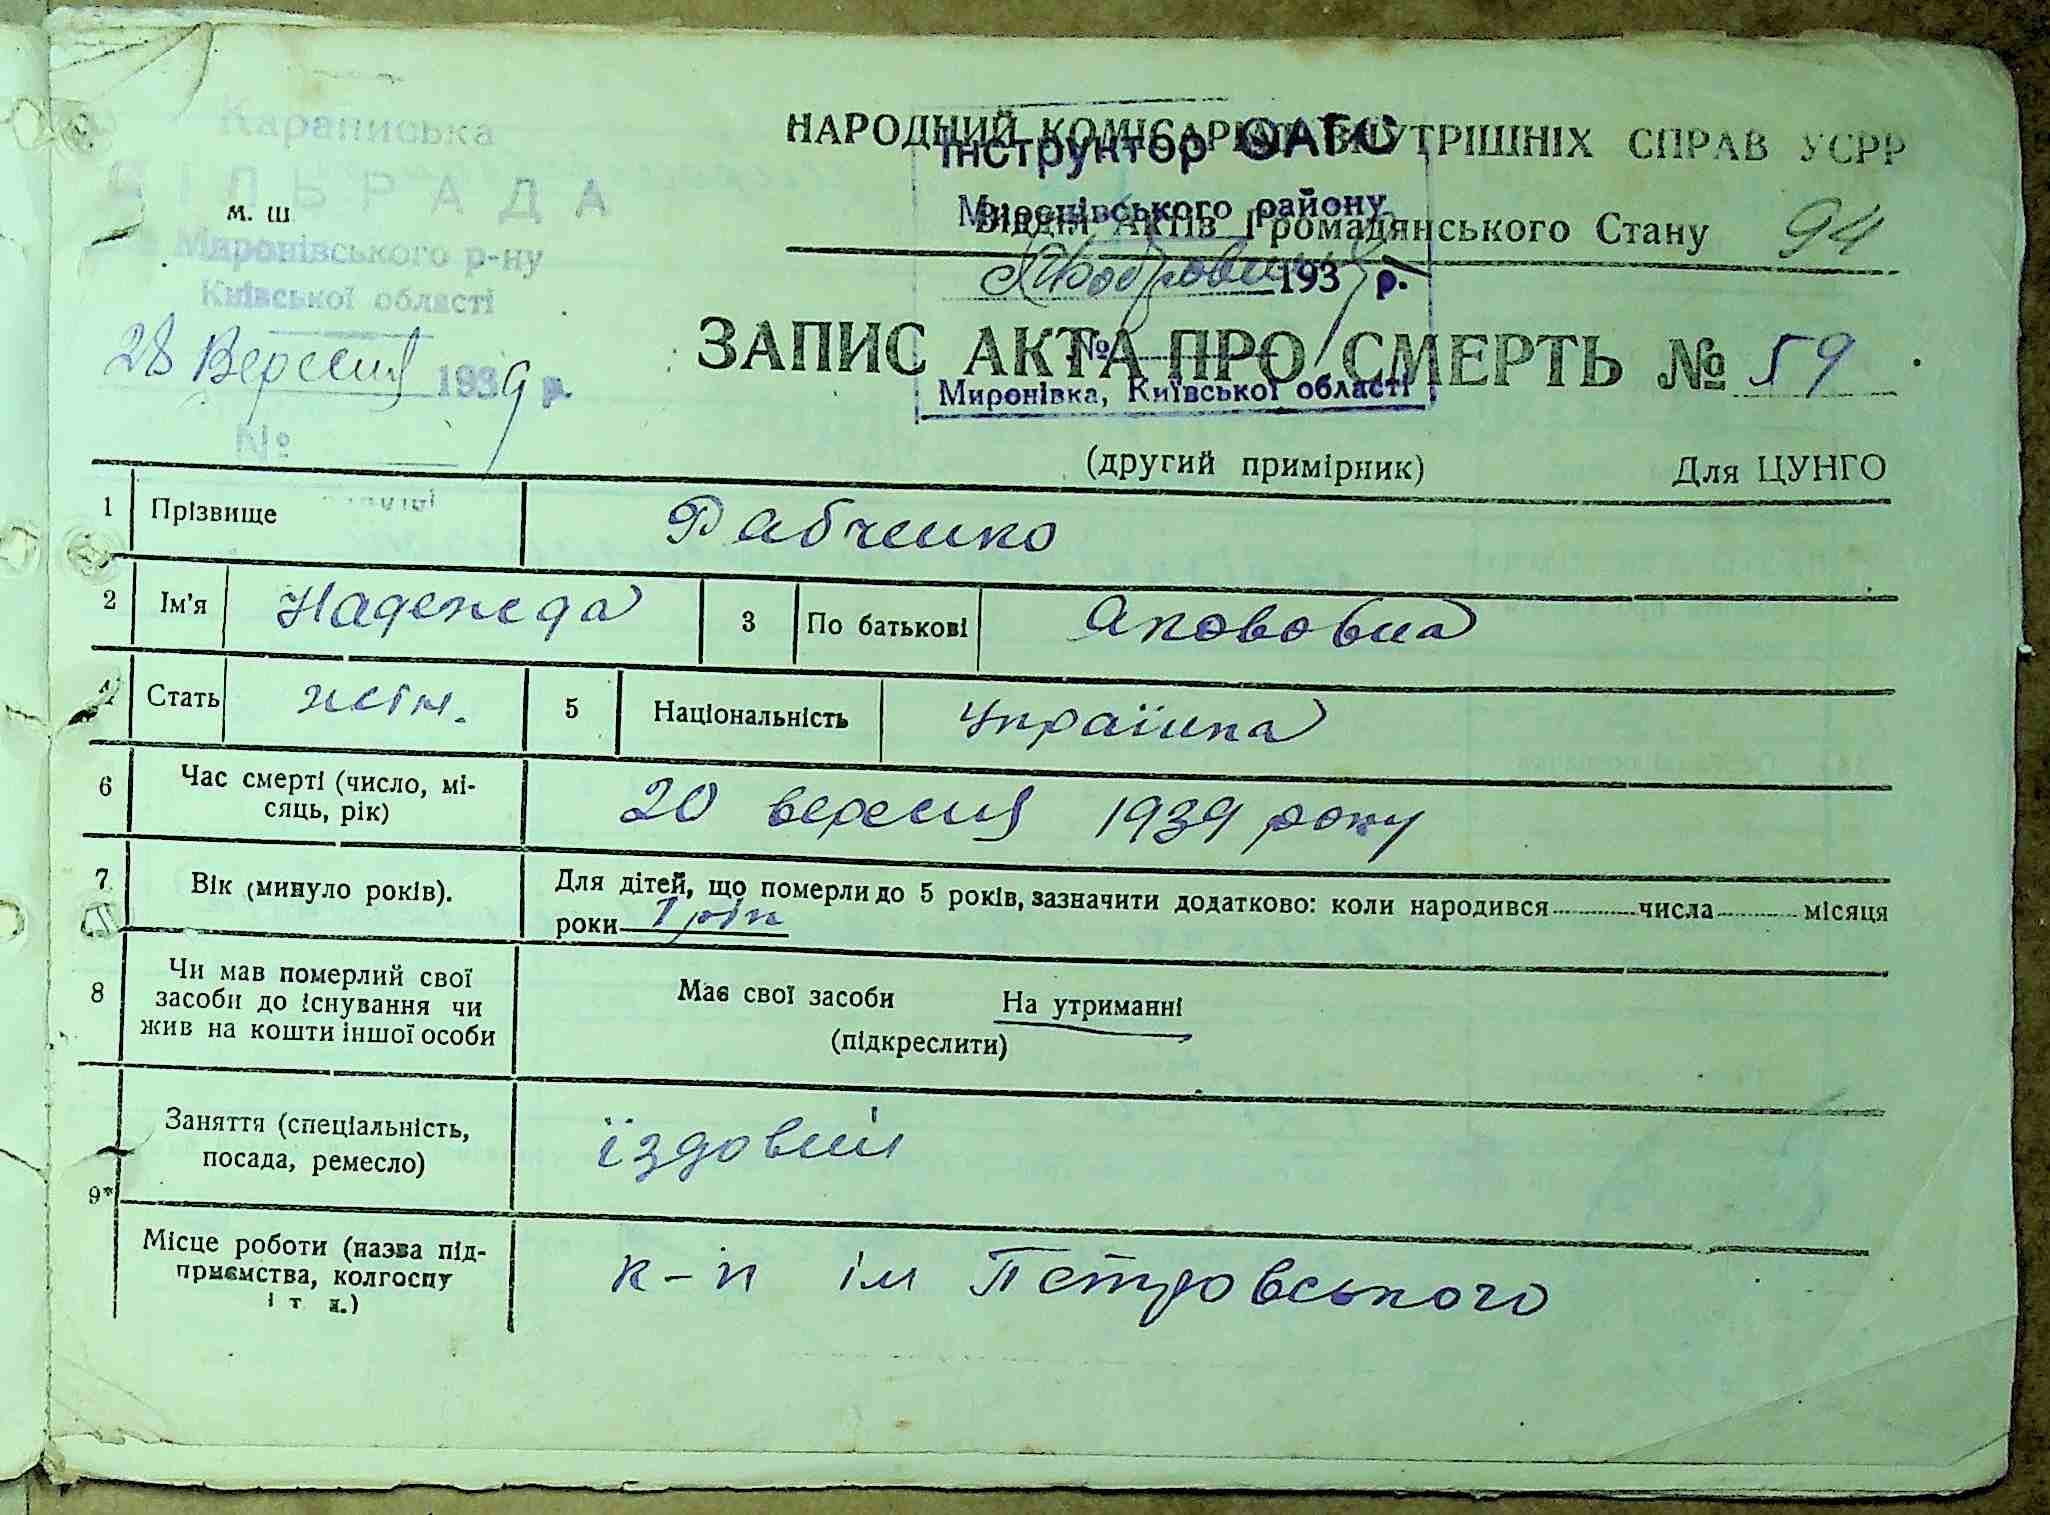 Караписька
СІЛЬРАДА
м. ш
Миронівського р-ну
Київської області
28 Вересня 1939 р.
№
НАРОДНИЙ КОМІСАРІАТ ВНУТРІШНІХ СПРАВ УСРР
Відділ Актів Громадянського Стану 94
Інструктор ОАГС
Миронівського району
193 р.
№
Миронівка, Київської області
ЗАПИС АКТА ПРО СМЕРТЬ № 59
(другий примірник) Для ЦУНГО
1 Прізвище Рабченко
2 Ім'я Надежда 3 По батькові Якововна
4 Стать жін. 5 Національність Українка
6 Час смерті (число, мі-
сяць, рік) 20 вересня 1939 року
7 Вік (минуло років). Для дітей, що померли до 5 років, зазначити додатково: коли народився числа місяця
роки 1 рік
8 Чи мав померлий свої
засоби до існування чи
жив на кошти іншої особи
Має свої засоби На утриманні
(підкреслити)
9* Заняття (спеціальність,
посада, ремесло) їздовий
Місце роботи (назва під-
приємства, колгоспу
і т д.) к-п ім Петровського